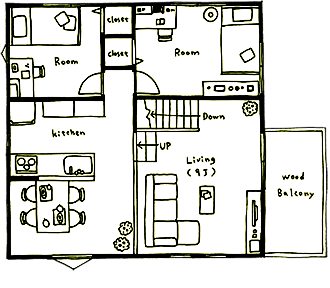 closet
closet
Room
Room
kitchen
Down
UP
Living
(9J)
wood
Balcony